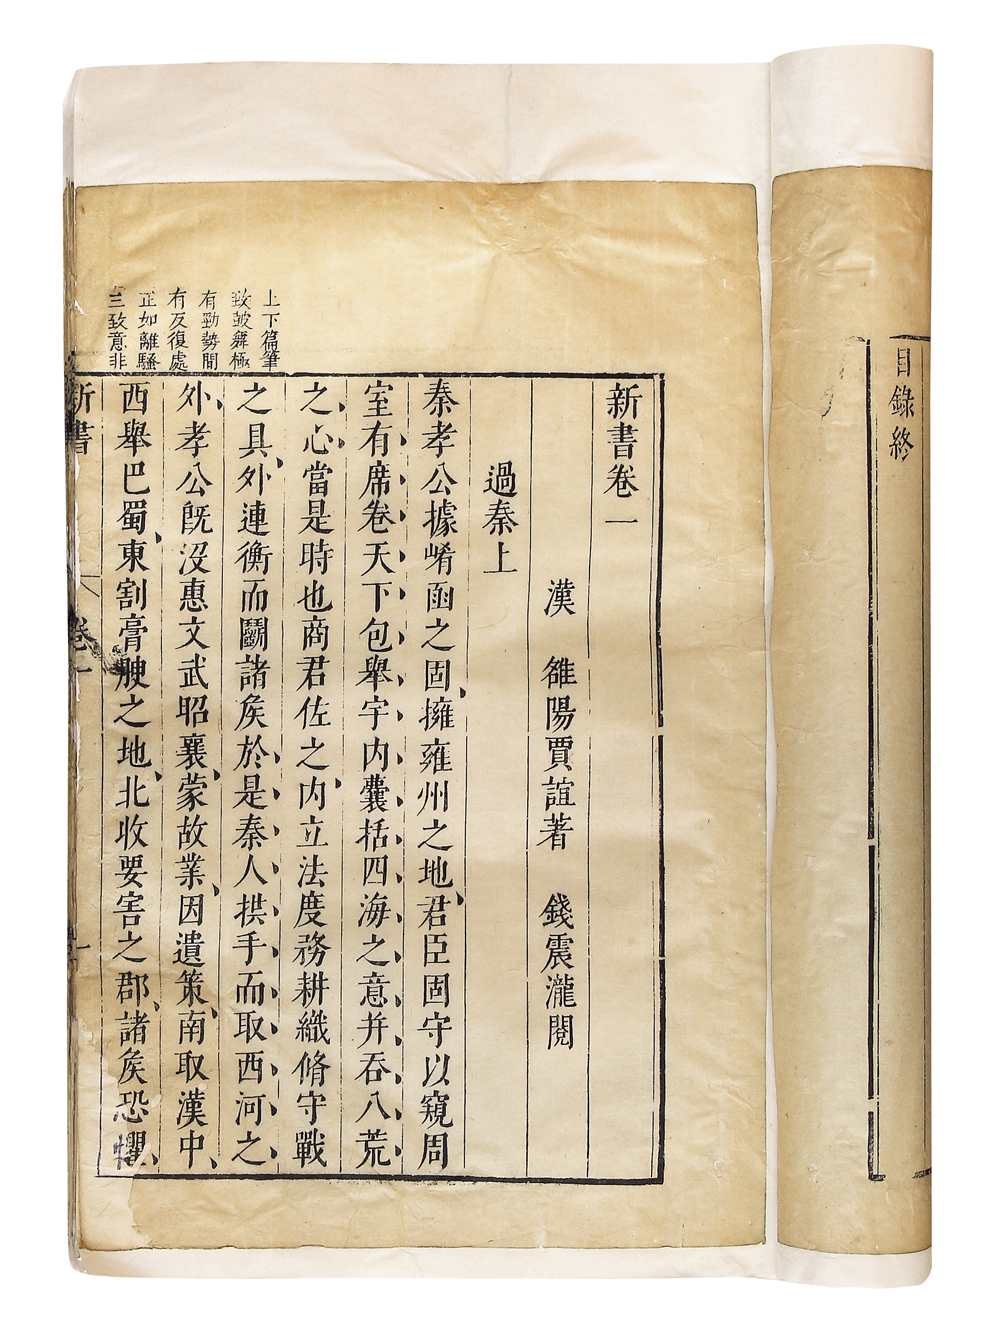 目錄終
新書卷一
漢　雒陽賈誼著　錢震瀧閱
過秦上
秦孝公據崤函之固擁雍州之地君臣固守以窺周
室有席卷天下包舉宇内囊括四海之意并吞八荒
之心當是時也商君佐之内立法度務耕織脩守戰
之具外連衡而鬬諸矦於是秦人拱手而取西河之
外孝公旣沒惠文武昭襄蒙故業因遺策南取漢中
西舉巴蜀東割膏腴之地北收要害之郡諸矦恐懼
上下篇筆
致皷舞極
有勁勢間
有反復處
正如離騷
三致意非
新書
卷一
一